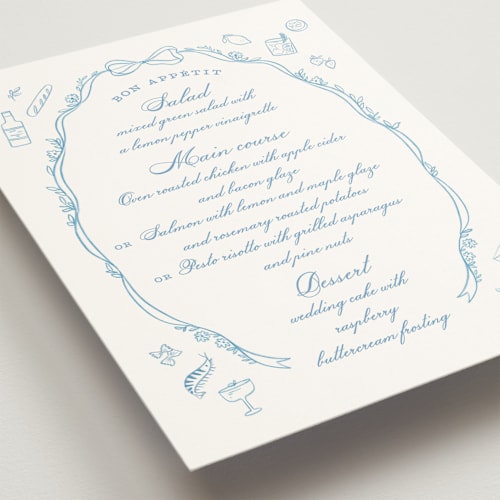 BON APPÉTIT
Salad
mixed green salad with
a lemon pepper vinaigrette
Main course
Oven roasted chicken with apple cider
and bacon glaze
OR Salmon with lemon and maple glaze
and rosemary roasted potatoes
OR Pesto risotto with grilled asparagus
and pine nuts
Dessert
wedding cake with
raspberry
buttercream frosting